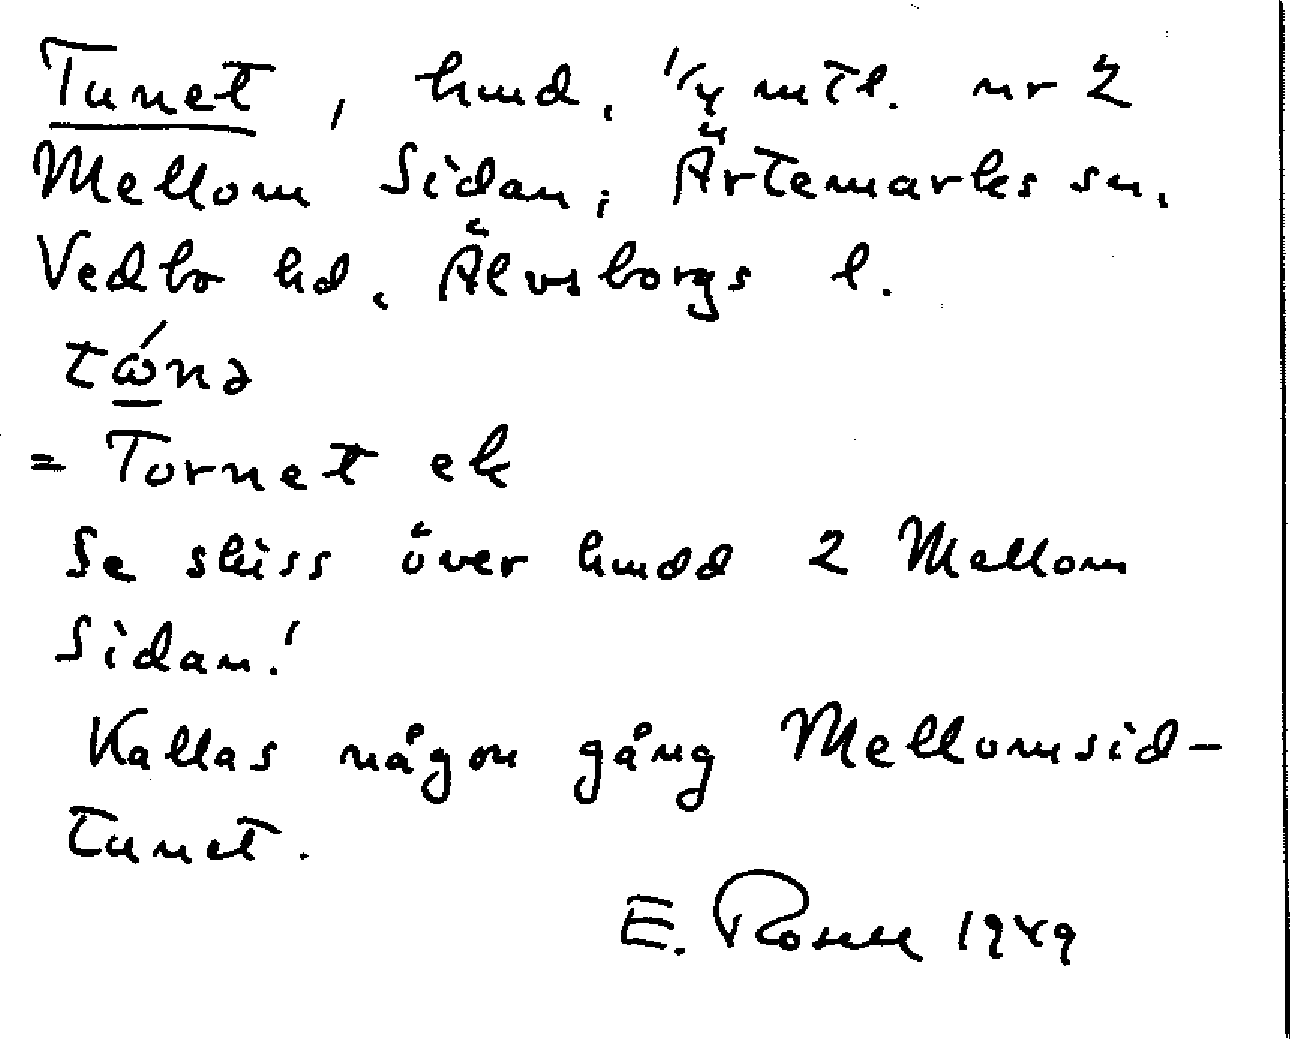 Tunet, hmd. 1/4 mtl. nr 2
Mellom Sidan, Ärtemarks sn,
Vedbo hd, Älvsborgs l.
tώnə
= Tornet ek
Se skiss över hmdd 2 Mellom
Sidan!
Kallas någon gång Mellomsid-
tunet.
E. 1949